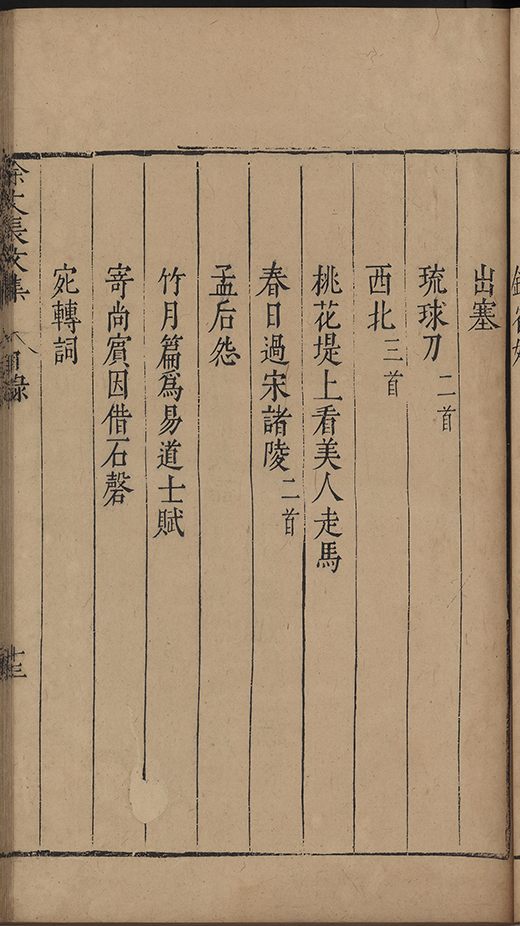 出塞
琉球刀 二首
西北 三首
桃花堤上看美人走馬
春日過宋諸陵 二首
孟后怨
竹月篇爲易道士賦
寄尚賓因借石磬
宛轉詞
徐文長文集 目錄 十三